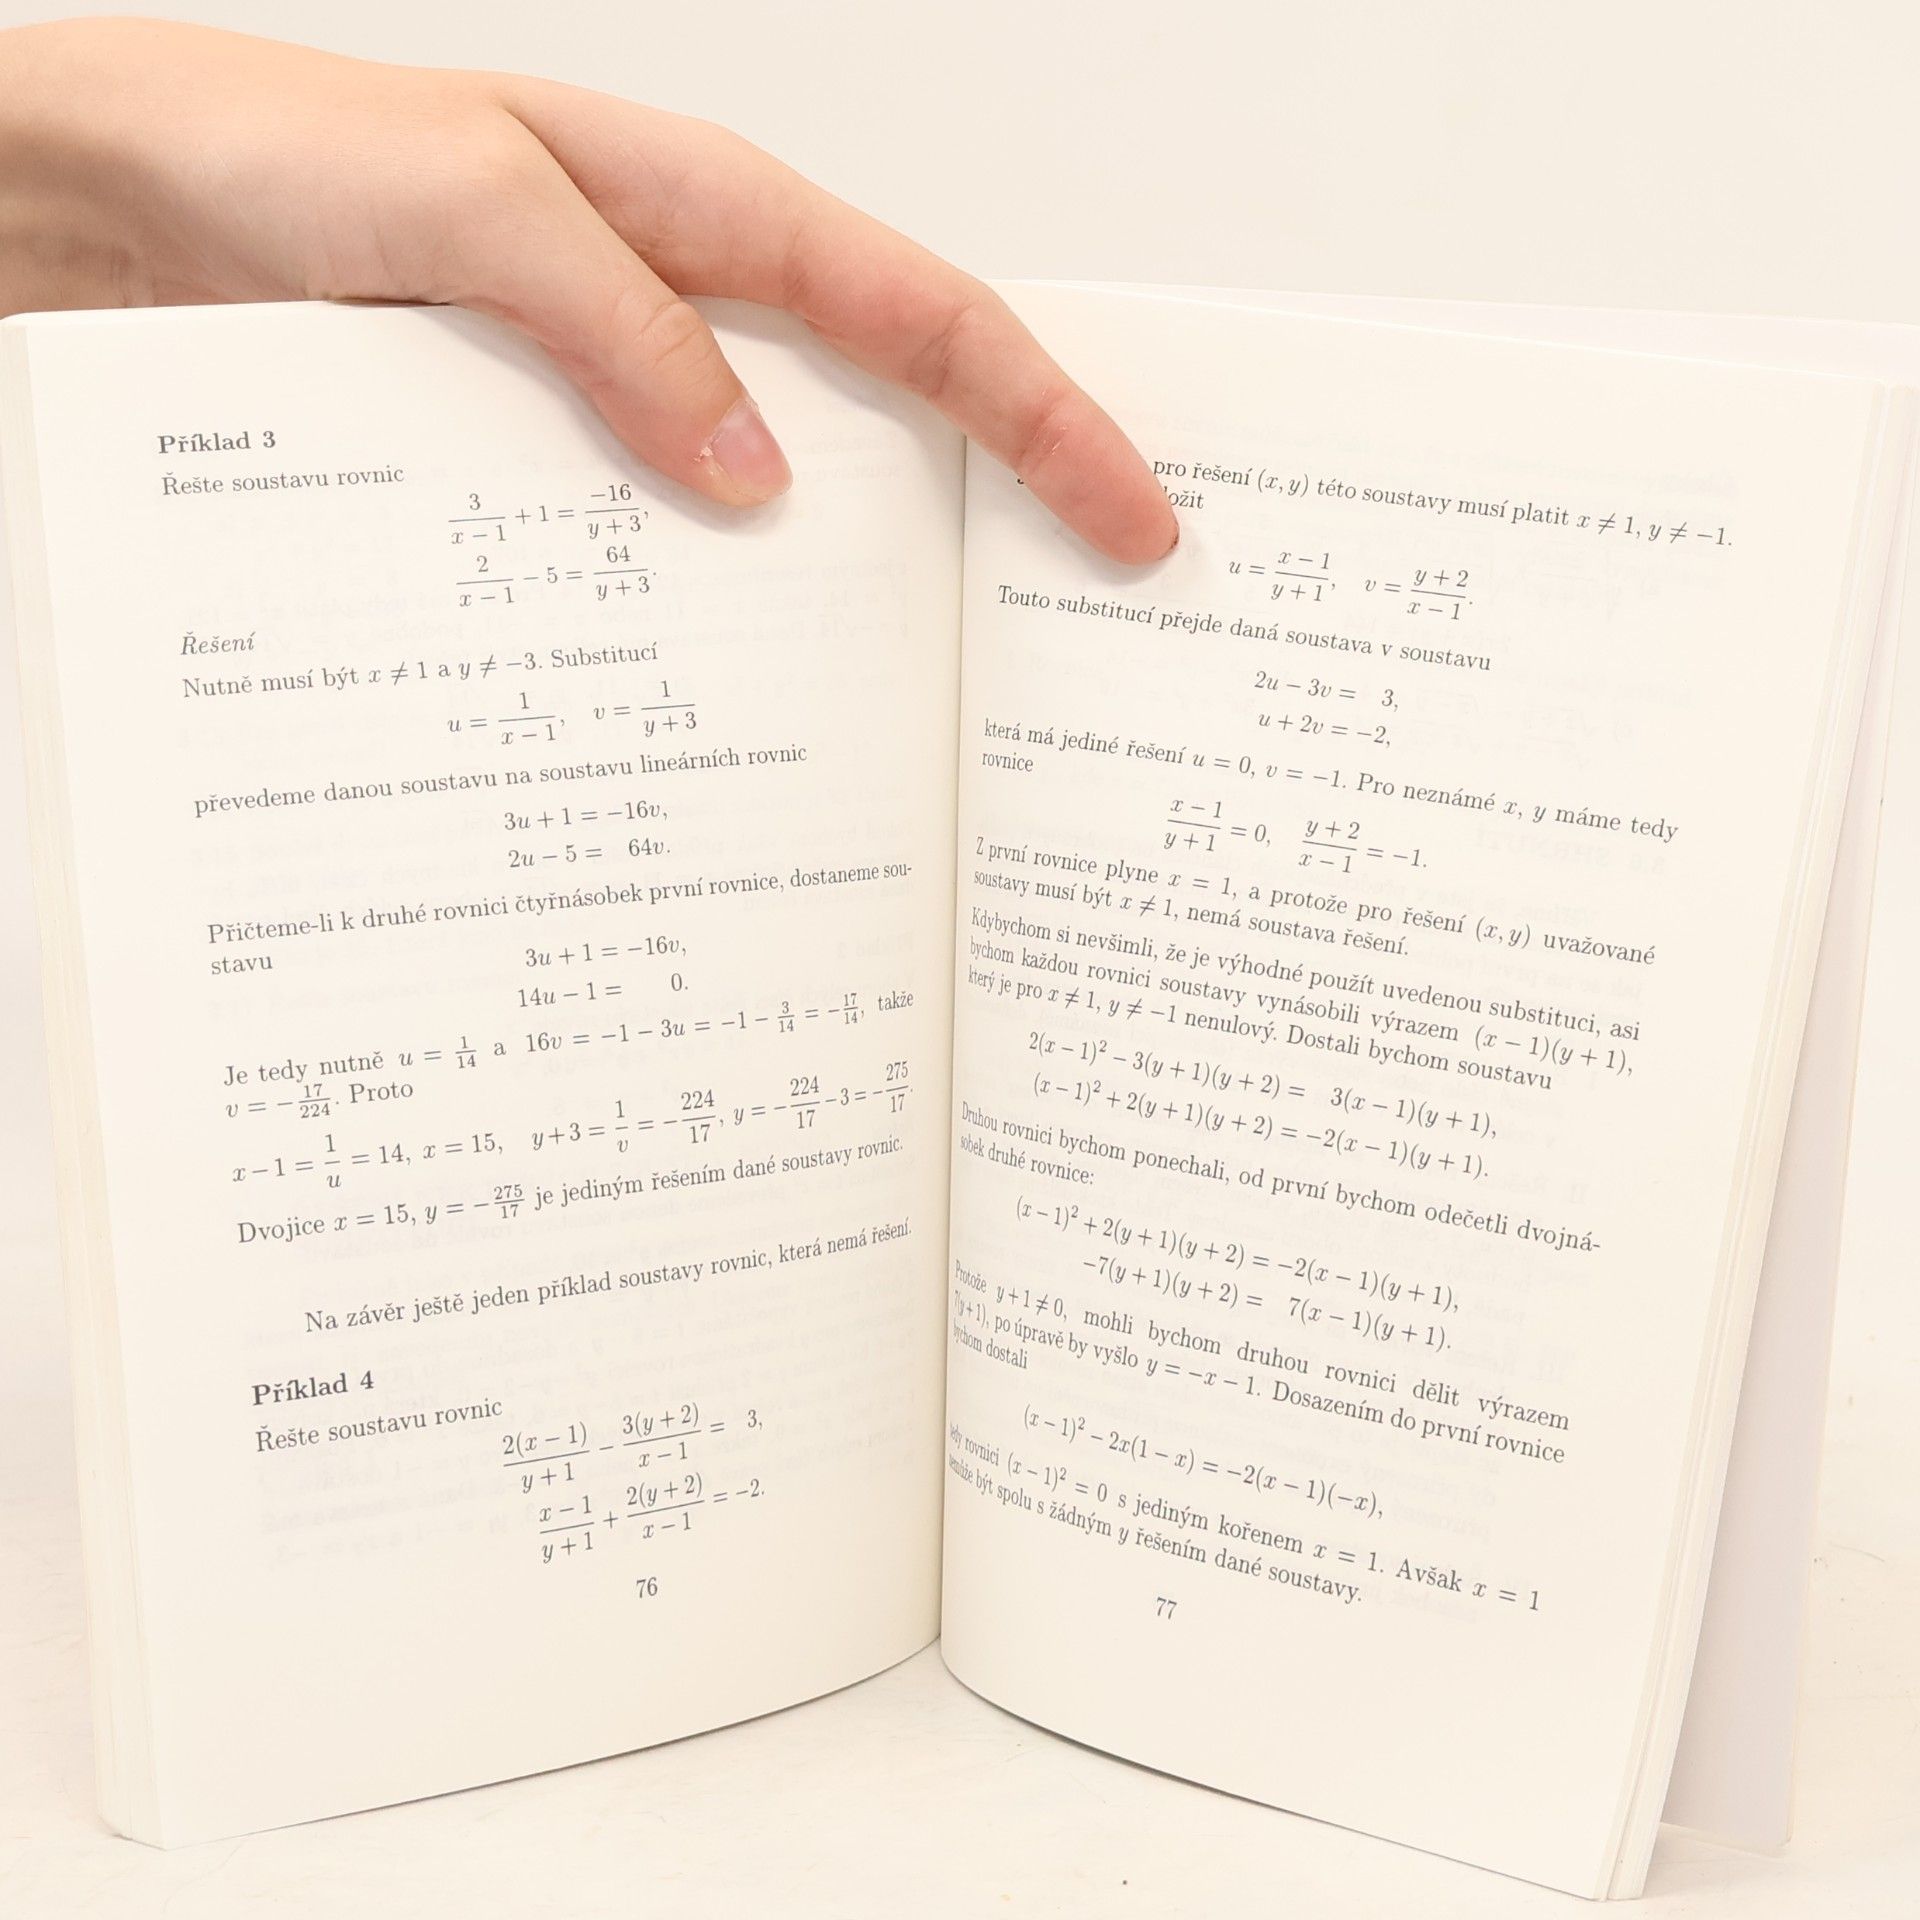 Příklad 3
Řešte soustavu rovnic
3/(x − 1) + 1 = −16/(y + 3),
2/(x − 1) − 5 = 64/(y + 3).
Řešení
Nutně musí být x ≠ 1 a y ≠ −3. Substitucí
u = 1/(x − 1), v = 1/(y + 3)
převedeme danou soustavu na soustavu lineárních rovnic
3u + 1 = −16v,
2u − 5 = 64v.
Přičteme-li k druhé rovnici čtyřnásobek první rovnice, dostaneme sou-
stavu
3u + 1 = −16v,
14u − 1 = 0.
Je tedy nutně u = 1/14 a 16v = −1 − 3u = −1 − 3/14 = −17/14, takže
v = −17/224. Proto
x − 1 = 1/u = 14, x = 15, y + 3 = 1/v = −224/17, y = −224/17 − 3 = −275/17.
Dvojice x = 15, y = −275/17 je jediným řešením dané soustavy rovnic.
Na závěr ještě jeden příklad soustavy rovnic, která nemá řešení.
Příklad 4
Řešte soustavu rovnic
2(x − 1)/(y + 1) − 3(y + 2)/(x − 1) = 3,
(x − 1)/(y + 1) + 2(y + 2)/(x − 1) = −2.
76
pro řešení (x, y) této soustavy musí platit x ≠ 1, y ≠ −1.
u = (x − 1)/(y + 1), v = (y + 2)/(x − 1).
Touto substitucí přejde daná soustava v soustavu
2u − 3v = 3,
u + 2v = −2,
která má jediné řešení u = 0, v = −1. Pro neznámé x, y máme tedy
rovnice
(x − 1)/(y + 1) = 0, (y + 2)/(x − 1) = −1.
Z první rovnice plyne x = 1, a protože pro řešení (x, y) uvažované
soustavy musí být x ≠ 1, nemá soustava řešení.
Kdybychom si nevšimli, že je výhodné použít uvedenou substituci, asi
bychom každou rovnici soustavy vynásobili výrazem (x − 1)(y + 1),
který je pro x ≠ 1, y ≠ −1 nenulový. Dostali bychom soustavu
2(x − 1)² − 3(y + 1)(y + 2) = 3(x − 1)(y + 1),
(x − 1)² + 2(y + 1)(y + 2) = −2(x − 1)(y + 1).
Druhou rovnici bychom ponechali, od první bychom odečetli dvojná-
sobek druhé rovnice:
(x − 1)² + 2(y + 1)(y + 2) = −2(x − 1)(y + 1),
−7(y + 1)(y + 2) = 7(x − 1)(y + 1).
Protože y + 1 ≠ 0, mohli bychom druhou rovnici dělit výrazem
7(y + 1), po úpravě by vyšlo y = −x − 1. Dosazením do první rovnice
bychom dostali
(x − 1)² − 2x(1 − x) = −2(x − 1)(−x),
tedy rovnici (x − 1)² = 0 s jediným kořenem x = 1. Avšak x = 1
nemůže být spolu s žádným y řešením dané soustavy.
77